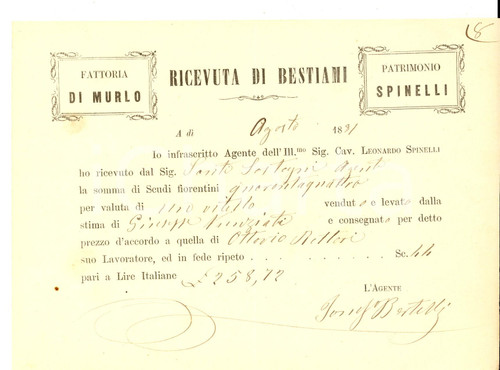 8
FATTORIA
DI MURLO
RICEVUTA DI BESTIAMI
PATRIMONIO
SPINELLI
A dì Agosto 1891
Io infrascritto Agente dell'Ill.mo Sig. Cav. LEONARDO SPINELLI
ho ricevuto dal Sig. Sante
la somma di Scudi fiorentini quarantaquattro
per valuta di uno vitello vendute e levato dalla
stima di Giuseppe e consegnato per detto
prezzo d'accordo a quella di Ottavio
suo Lavoratore, ed in fede ripeto . . . . . Sc. 44
pari a Lire Italiane £258,72
L'AGENTE
Bertelli